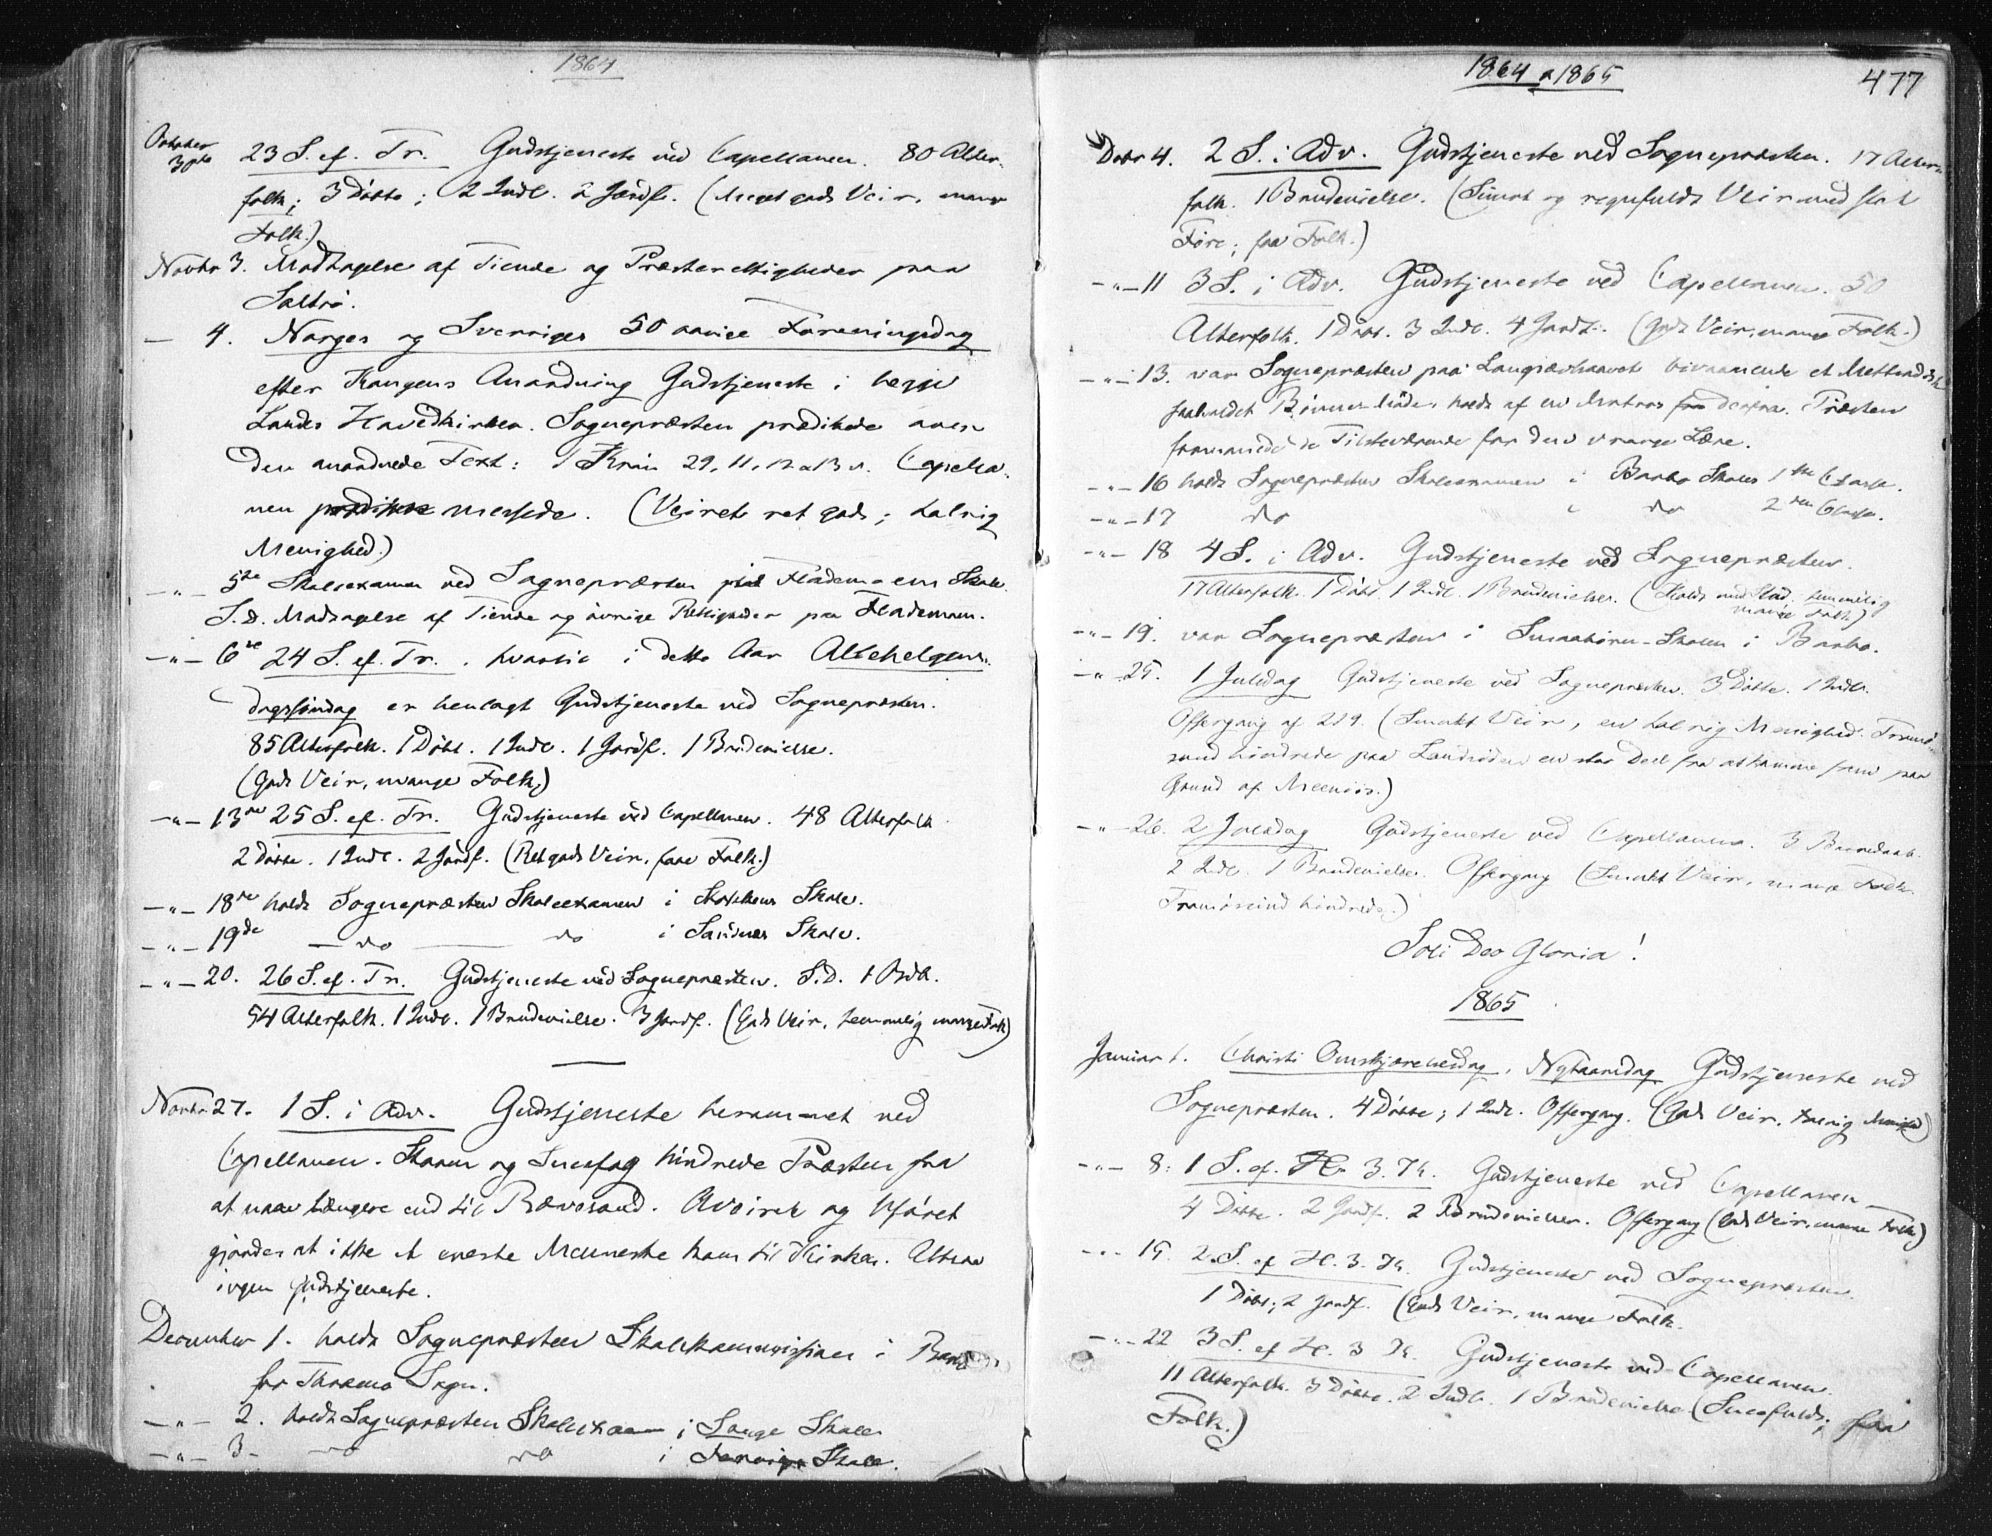 1864
October 30te 23 S. ef. Tr. Gudstjeneste ved Capellanen. 80 Alter-
folk; 3 Døbte; 2 Indl. 2 Jordf. (Meget godt Veir, mange
Folk.)
Novbr 3. Modtagelse af Tiende og Præsterettigheder paa
Saltrø.
— 4. Norges og Sverriges 50 aarige Foreningsdag
efter Kongens Anordning Gudstjeneste i begge
Landes Hovedkirker. Sognepræsten prædikede over
den anordnede Text: 1 Krøn 29, 11, 12 & 13 v. Capella-
nen prædikede messede. (Veiret ret godt; talrig
Menighed.)
— " — 5te Skoleexamen ved Sognepræsten paa Flademoens Skole.
S. d. Modtagelse af Tiende og øvrige Rettigheder paa Flademoen.
— " — 6te 24 S. ef. Tr., hvortil i dette Aar Allehelgens-
dagssöndag er henlagt Gudstjeneste ved Sognepræsten.
85 Alterfolk. 1 Døbt. 1 Indl. 1 Jordf. 1 Brudevielse.
(Godt Veir, mange Folk.)
— " — 13de 25 S. ef. Tr. Gudstjeneste ved Capellanen. 48 Alterfolk
2 Døbte. 1 Indl. 2 Jordf. (Ret godt Veir, faae Folk.)
— " — 18de holdt Sognepræsten Skoleexamen i Skole.
— " — 19de — do — do i Sandnes Skole.
— " — 20. 26 S. ef. Tr. Gudstjeneste ved Sognepræsten. S. D.
54 Alterfolk. 1 Indl. 1 Brudevielse. 3 Jordf. (Godt Veir, temmelig mange Folk)
Novbr 27. 1 S. i Adv. Gudstjeneste berammet ved
Capellanen. Storm og Snefog hindrede Præsten fra
at naae længere end til Rævesand. Aveiret og Uføret
gjorde, at ikke et eneste Menneske kom til Kirken. Altsaa
ingen Gudstjeneste.
December 1. holdt Sognepræsten Skolekommission i
for Thromø Sogn.
— " — 2. holdt Sognepræsten Skoleexamen i Skole
— " — 3 — do do i Skole.
1864 & 1865 477
Decbr 4. 2 S. i Adv. Gudstjeneste ved Sognepræsten. 17 Alter-
folk. 1 Brudevielse. (Surt og regnfuldt Veir med slet
Føre; faa Folk.)
— " — 11 3 S. i Adv. Gudstjeneste ved Capellanen. 50
Alterfolk. 1 Døbt. 3 Indl. 4 Jordf. (Godt Veir, mange Folk.)
— " — 13. var Sognepræsten paa bivaanende et
holdt af en Matros derfra. Præsten
de Tilstedeværende for den vrange Lære.
— " — 16 holdt Sognepræsten Skoleexamen i Barbo Skoles 1ste Classe.
— " — 17 do " do 2den Classe.
— " — 18 4 S. i Adv. Gudstjeneste ved Sognepræsten.
17 Alterfolk. 1 Døbt. 1 Indl. 1 Brudevielse. (Koldt med Slud. temmelig
mange Folk.)
— " — 19. var Sognepræsten i Smaabørn-Skolen i Barbo.
— " — 25. 1 Juledag Gudstjeneste ved Sognepræsten. 3 Døbte. 1 Indl.
Offergang af (Smukt Veir, en talrig Menighed. Tromø-
sund hindrede paa Landsiden en stor Deel fra at komme frem paa
Grund af Meenis.)
— " — 26. 2 Juledag Gudstjeneste ved Capellanen. 3 Barnedaab.
2 Indl. 1 Brudevielse. Offergang (Smukt Veir, mange Folk.
Tromøsund hindrede.)
Soli Deo Gloria!
1865
Januar 1. Christi Omskjærelsesdag, Nytaarsdag Gudstjeneste ved
Sognepræsten. 4 Døbte; 1 Indl. Offergang. (Godt Veir, talrig Menighed)
— " — 8. 1 S. ef. H. 3. K. Gudstjeneste ved Capellanen
4 Døbte. 2 Jordf. 2 Brudevielser. Offergang (Godt Veir, mange Folk)
— " — 15. 2. S. ef H. 3. K. Gudstjeneste ved Sognepræsten.
1 Døbt; 2 Jordf. (Godt Veir, mange Folk.
— " — 22 3 S. ef H. 3 K. Gudstjeneste ved Capellanen.
11 Alterfolk. 3 Døbte. 2 Indl. 1 Brudevielse (Snefuldt; faa
Folk.)